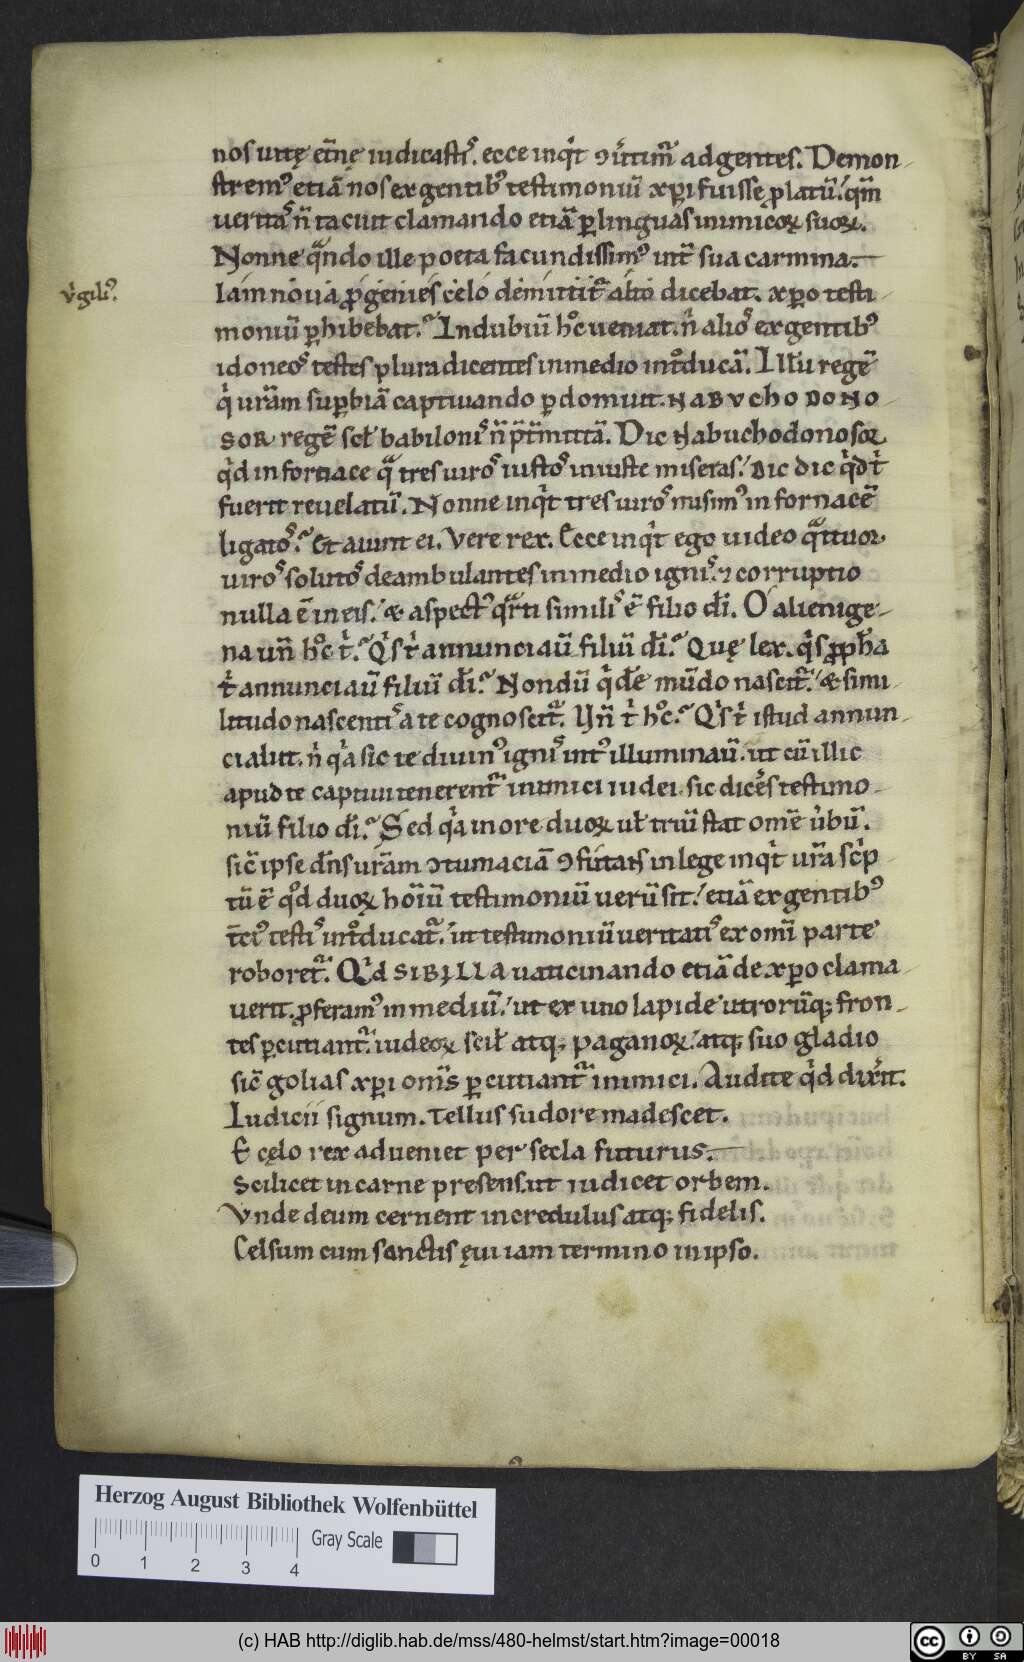 nos uitę et̄nę iudicasti᷒. ecce inqͥt ꝯuͥtim̄ ad gentes. Demon-
strem᷒ etiā nos ex gentib᷒ testimoniū xp̄i fuisse ꝓlatū. qm̄
ueritas n̄ tacuit clamando etiā ꝑ linguas inimicoꝝ suoꝝ.
Nonne qͣndo ille poeta facundissim᷒ int̄ sua carmina.
Iam noua ꝓgenies celo demittit᷑ alto dicebat. xp̄o testi-
v̾gili᷒.
moniū ꝑhibebat. Indubiū hͦc ueniat. nͥ alios ex gentib᷒
idoneos testes plura dicentes in medio intͦducā. Illū regē
qͥ ur̄am suꝑbiā captiuando ꝑdomuit. NABVCHODONO
SOR regē scł babilonis n̄ p̄t̄mittā. Dic Nabuchodonosoꝛ
qͥd in fornace qͣ tres uiros iustos iniuste miseras. Dic dic qͥd tͥ
fuerit reuelatū. Nonne inqͥt tres uiros misim᷒ in fornacē
ligatos. Et aiunt ei. Vere rex. Ecce inqͥt ego uideo qͣttuoꝛ
uiros solutos deambulantes in medio ignis. ⁊ corruptio
nulla ē in eis. & aspect᷒ qͣrti similis ē filio dī. O alienige-
na un̄ hͦc tͥ. Qͥs tͥ annunciaū filiū dī. Quę lex. qͥs ꝓpha
tͥ annunciaū filiū dī. Nondū qͥdē mūdo nascit᷑. & simi-
litudo nascentis a te cognoscit᷑. Vn̄ tͥ hͦc. Qͥs tͥ istud annun-
ciauit. nͥ qͥa sic te diuin᷒ ignis int᷒ illuminaū. ut cū illic
apud te captiui tenerent᷑ inimici iudei. sic dices testimo-
niū filio dī. Sed qͥa in ore duoꝝ uł triū stat om̄e ūbū.
sic̄ ipse dn̄s ur̄am ꝯtumaciā ꝯfutans in lege inqͥt ur̄a scͥp
tū ē qͦd duoꝝ hoīū testimoniū uerū sit. etiā ex gentib᷒
t̄ci᷒ testis intͦducat᷑. ut testimoniū ueritatis ex om̄i parte
roboret᷑. Qͥd SIBILLA uaticinando etiā de xp̄o clama-
uerit. ꝓferam᷒ in mediū. ut ex uno lapide utrorūq; fron-
tes ꝑcutiant᷑. iudeoꝝ scił atq; paganoꝝ. atq; suo gladio
sic̄ golias xp̄i om̄s ꝑcutiant᷑ inimici. Audite qͥd dixͥit.
Iudicii signum. Tellus sudore madescet.
E cęlo rex adueniet per secla futurus.
Scilicet in carne presens. ut iudicet orbem.
Vnde deum cernent incredulus atq; fidelis.
Celsum cum sanctis ęui iam termino in ipso.
Herzog August Bibliothek Wolfenbüttel
Gray Scale
0 1 2 3 4
(c) HAB http://diglib.hab.de/mss/480-helmst/start.htm?image=00018
cc BY SA